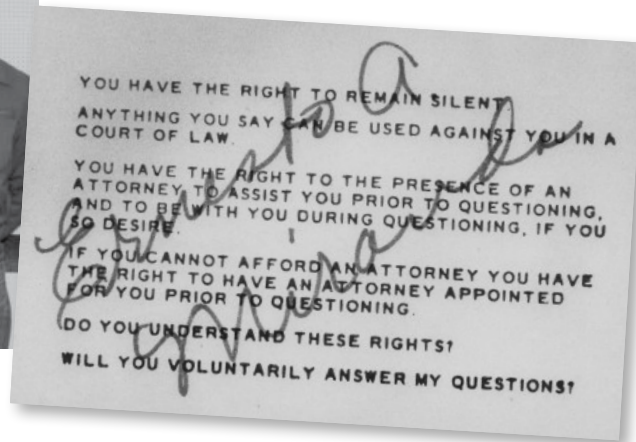 YOU HAVE THE RIGHT TO REMAIN SILENT.
ANYTHING YOU SAY CAN BE USED AGAINST YOU IN A
COURT OF LAW.
YOU HAVE THE RIGHT TO THE PRESENCE OF AN
ATTORNEY TO ASSIST YOU PRIOR TO QUESTIONING,
AND TO BE WITH YOU DURING QUESTIONING, IF YOU
SO DESIRE.
IF YOU CANNOT AFFORD AN ATTORNEY YOU HAVE
THE RIGHT TO HAVE AN ATTORNEY APPOINTED
FOR YOU PRIOR TO QUESTIONING.
DO YOU UNDERSTAND THESE RIGHTS?
WILL YOU VOLUNTARILY ANSWER MY QUESTIONS?
Ernesto A
Miranda